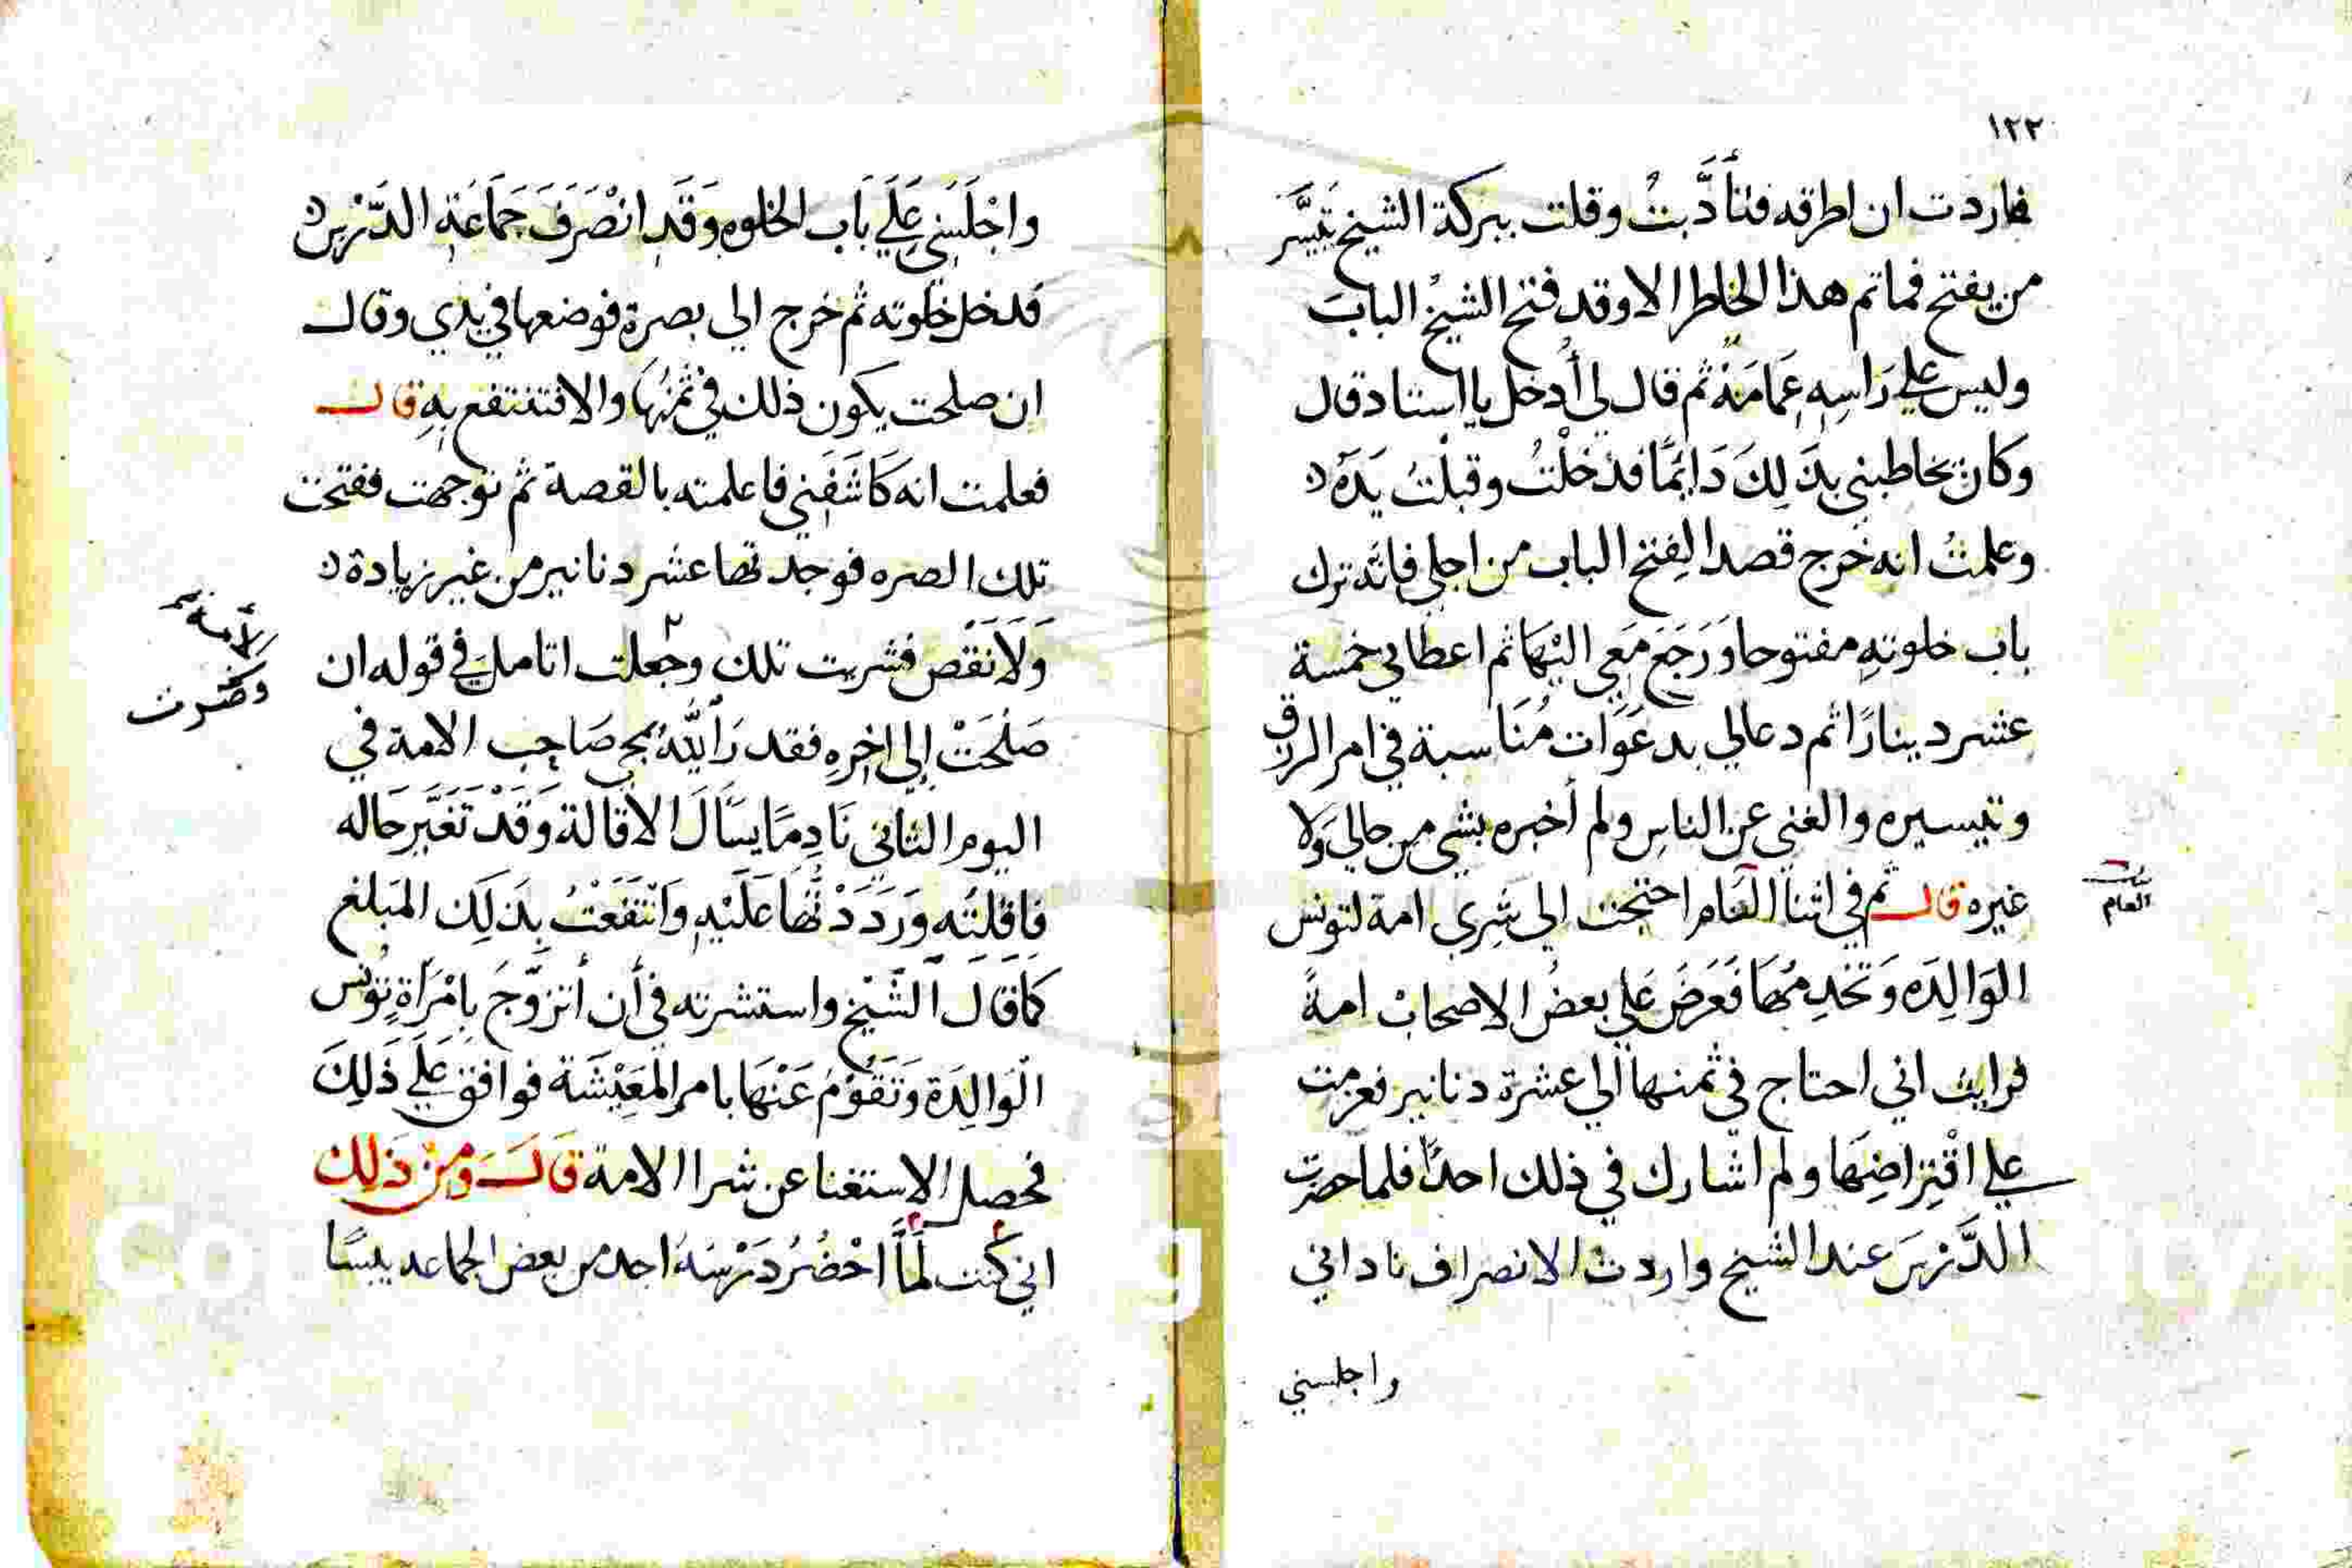 ١٢٢
فاردت ان اطرقه فتأَدَّبتُ وقلت ببركة الشيخ تيَسَّر
من يفتح فما تم هذا الخاطر الا وقد فتح الشيخُ البابَ
وليس علي رَاسِهِ عِمَامَة ثم قال لي أُدخل يا استاد قال
وكان يخاطبني بذَلِكَ دَائِمًا فدَخَلْتُ وقبلْتُ يَدَهُ
وعلمتُ انه خرج قصد الِفتح الباب من اجلي فانه ترك
باب خلوتهِ مفتوحا وَرَجَعَ مَعِي اليْهَا ثم اعطاني خمسة
عشر دينارًا ثم دعا لي بدعَوَات مُنَاسبة في امر الرزق
وتيسيره والغني عن الناسِ ولم أخبره بشي من حالي وَلا
غيره قال ثم في اثنا العَام احتجت الي شِرِي امة لتونس
الوَالِدَه وَتخدِمُهَا فَعَرَضَ عَلي بعضُ الاصحابْ امةً
فرايت اني احتاج في ثمنها الي عشرة دنانير فعزمت
علي اقْتِرَاضِهَا ولم اشارك في ذلك احدًا فلما حضرت
الدَّرْسَ عند الشيخ واردت الانصراف ناداني
واجلسني
بيت
العام
واجْلَسَنِي عَلَي بَاب الخلوهِ وَقَدِ انْصَرَفَ جَمَاعَة الدَّرْسِ
فدخل خلوته ثم خرج الي بصرة فوضعها في يدي وقال
ان صلحت يكون ذلك في ثمنَهَا والا فتنتفع بِهِ قال
فعلمت انه كَاشَفَنِي فاعلمته بالقصة ثم توجهت ففتحت
تلك الصره فوجدتها عشر دنانير من غير زيادة
وَلَا نَقْص فشريت تلك وجعلت اتامل في قوله ان
صَلُحَتْ إلي اخرِهِ فقد رَاللهُ بمجي صَاحِب الامة في
اليوم الثاني نَادِمًا يسَالَ الاقالة وَقَدْ تَغَيَّرَ حَاله
فاقلتُه وَرَدَدْتُهَا عَلَيْهِ وَانْتَفَعْتُ بِذَلِكَ المَبلغ
كما قال الشَّيْخ واستشرته في أن أتزوَّجَ بِامْرَأةٍ تؤنس
الْوَالِدَة وَتَقُوْمُ عَنْهَا بامر المَعِيْشَة فوافق عَلَي ذَلِكَ
فحصل الاستغنا عن شرا الامة قَالَ وَمِنْ ذَلِكَ
اني كنت لَمَّا احْضُرُ دَرْسَهُ اجد من بعض الجماعه يبسًا
الأمة